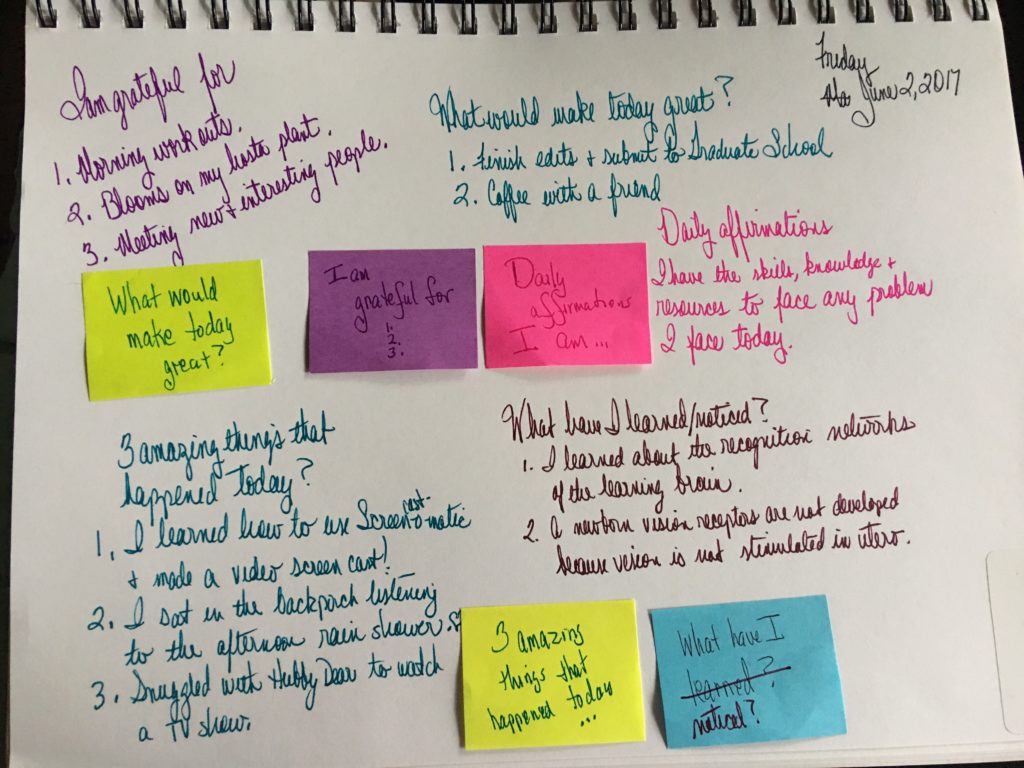 Friday
June 2, 2017
I am grateful for
1. Morning workouts.
2. Blooms on my hosta plant.
3. Meeting new & interesting people.
What would make today great?
1. Finish edits & submit to Graduate School
2. Coffee with a friend
Daily affirmations
I have the skills, knowledge &
resources to face any problem
I face today.
What would
make today
great?
I am
grateful for
1.
2.
3.
Daily
affirmations
I am...
3 amazing things that
happened today?
1. I learned how to use Screen-cast-o-matic
& made a video screen cast!
2. I sat in the backporch listening
to the afternoon rain shower.
3. Snuggled with Hubby Dear to watch
a TV show.
What have I learned/noticed?
1. I learned about the recognition networks
of the learning brain.
2. A newborn vision receptors are not developed
because vision is not stimulated in utero.
3 amazing
things that
happened today
...
What have I
learned?
noticed?